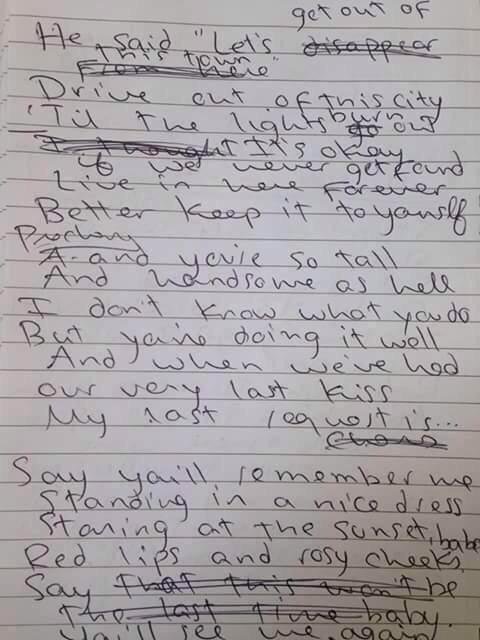 get out of
He said "Let's disappear
this town
From here"
Drive out of this city
'Til the lights burn go out
I thought It's okay
if we never get found
Live in here forever
Better keep it to yourself
Prechorus
A-and you're so tall
And handsome as hell
I don't know what you do
But you're doing it well
And when we've had
our very last kiss
My last request is...
Chorus
Say you'll remember me
Standing in a nice dress
Staring at the sunset, babe
Red lips and rosy cheeks
Say that this won't be
the last time baby.
you'll see me again